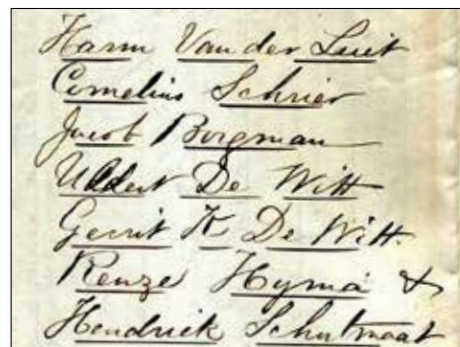 Harm Van der Luit
Cornelius Schrier
Jacob Borgman
De Witt
Gerrit K De Witt.
Renze Hyma &
Hendrick Schutmaat